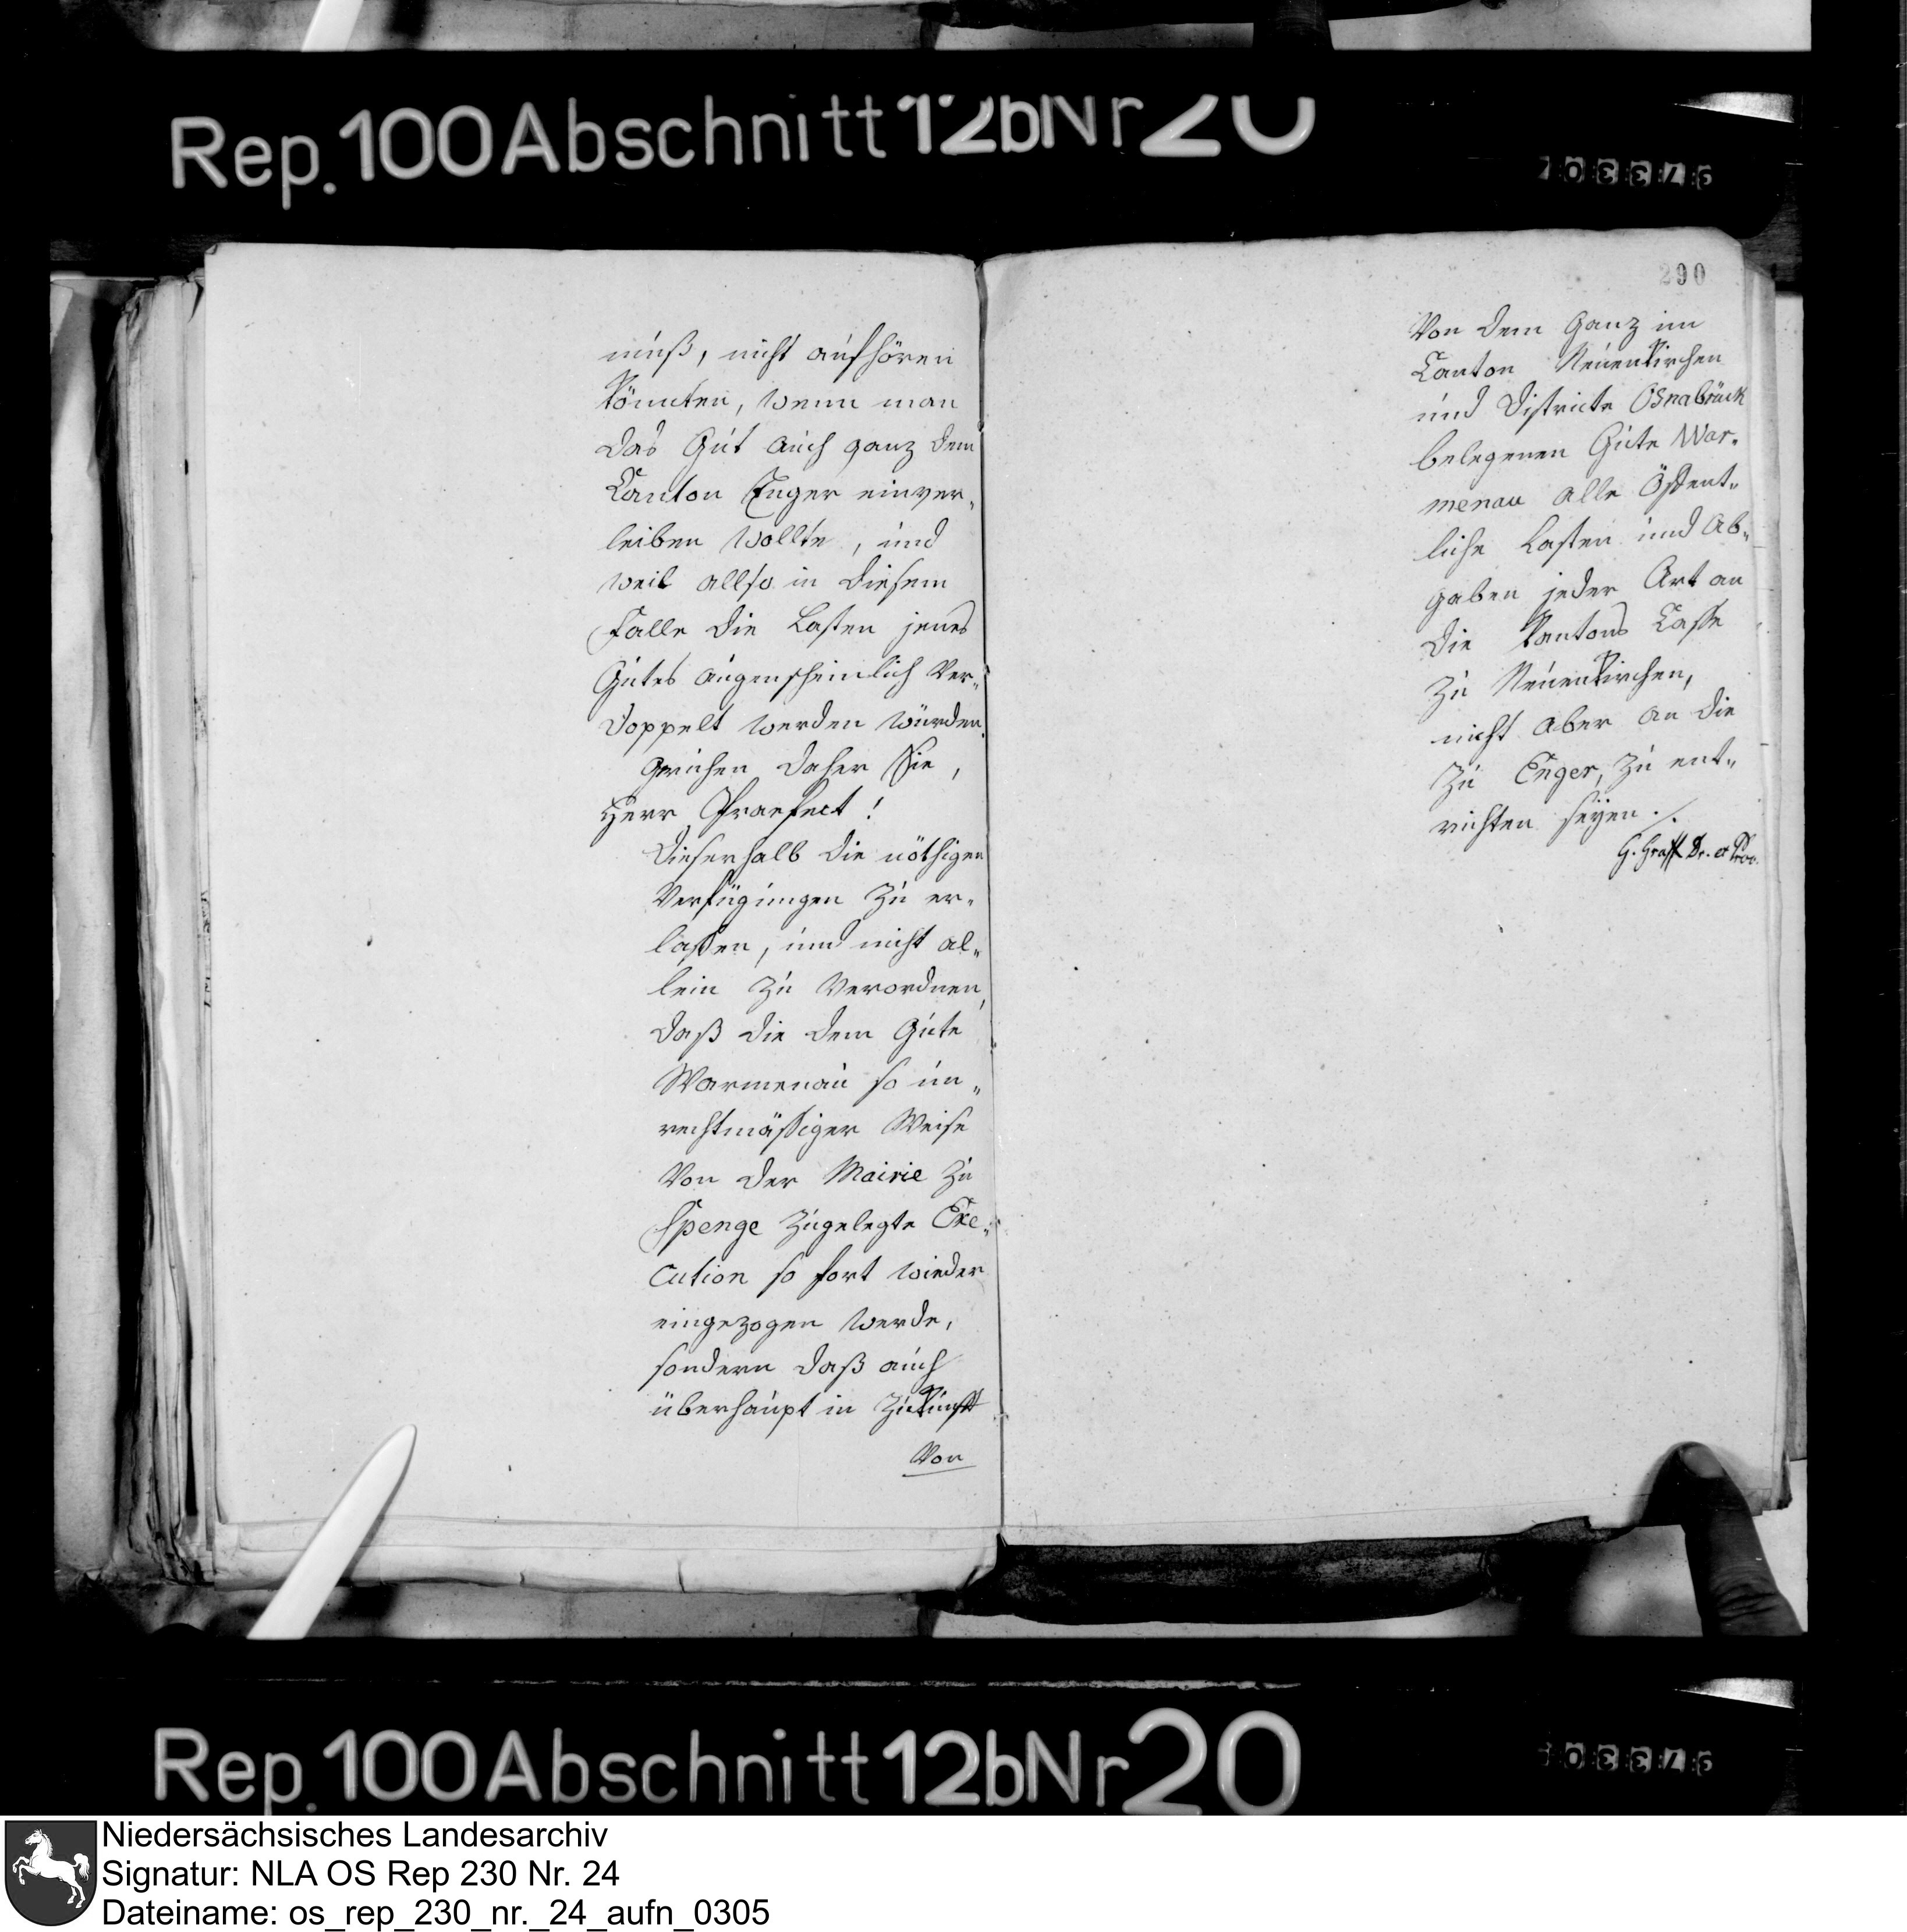 Rep. 100 Abschnitt 12b Nr 20
muß, nicht aufhören
könnten, wenn man
das Gut auch ganz dem
Canton Enger einver„
leiben wollte, und
weil allso in diesem
Falle die Lasten jenes
Gutes augenscheinlich ver„
doppelt werden würden.
Geruhen daher Sie,
Herr Praefect!
dieserhalb die nöthigen
Verfügungen zu er„
laßen, und nicht al„
lein zu verordnen,
daß die dem Gute
Warmenau so un„
rechtmäßiger Weise
von der Mairie zu
Spenge zugelegte Exe„
cution so fort wieder
eingezogen werde,
sondern daß auch
überhaupt in Zukunft
von
290
von dem ganz im
Canton Neuenkirchen
und Districte Osnabrück
belegenen Gute War„
menau alle öffent„
liche Lasten und Ab„
gaben jeder Art an
die Kantons Casse
zu Neuenkirchen,
nicht aber an die
zu Enger, zu ent„
richten seyen ./.
G. Graff Dr. et Proc.
Rep. 100 Abschnitt 12b Nr 20
Niedersächsisches Landesarchiv
Signatur: NLA OS Rep 230 Nr. 24
Dateiname: os_rep_230_nr._24_aufn_0305